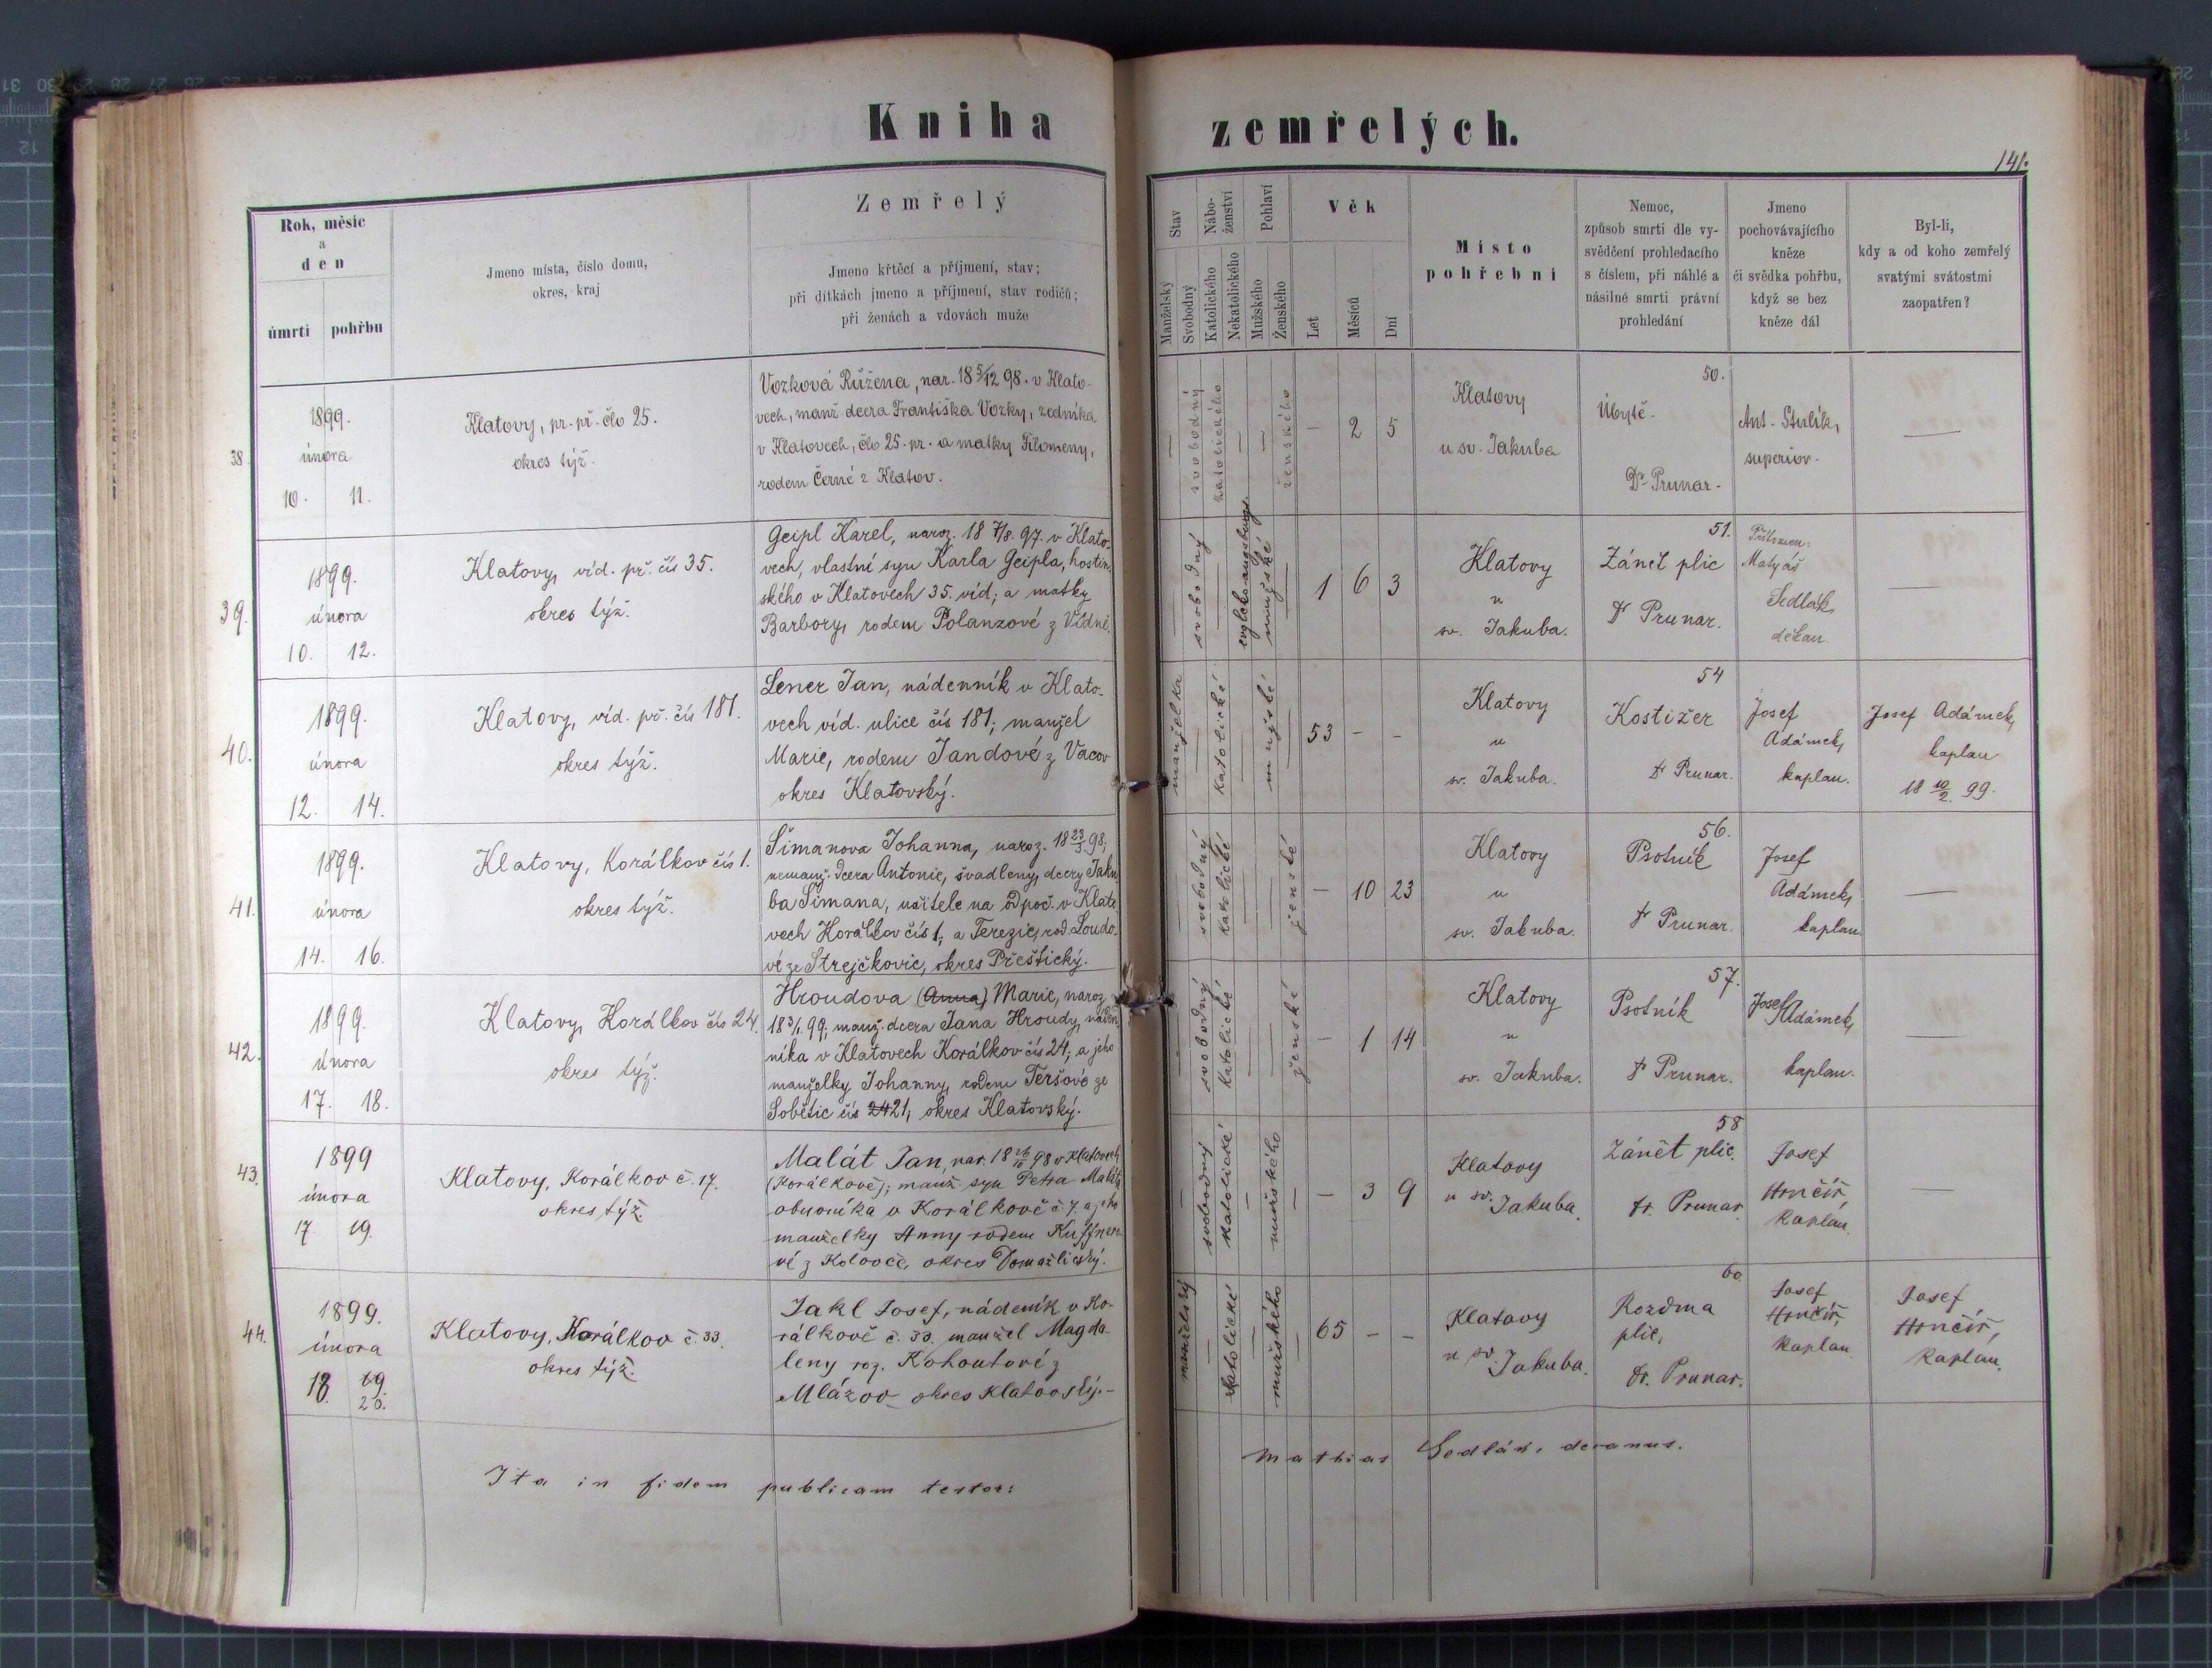 Kniha zemřelých.
141.
Rok, měsíc
a
den
úmrtí pohřbu
Jmeno místa, číslo domu,
okres, kraj
Zemřelý
Jmeno křtěcí a příjmení, stav;
při dítkách jmeno a příjmení, stav rodičů;
při ženách a vdovách muže
Stav
Manželský
Svobodný
Nábo-
ženství
Katolického
Nekatolického
Pohlaví
Mužského
Ženského
Věk
Let
Měsíců
Dní
Místo
pohřební
Nemoc,
způsob smrti dle vy-
svědčení prohledacího
s číslem, při náhlé a
násilné smrti právní
prohledání
Jmeno
pochovávajícího
kněze
či svědka pohřbu,
když se bez
kněze dál
Byl-li,
kdy a od koho zemřelý
svatými svátostmi
zaopatřen?
38.
1899.
února
10. 11.
Klatovy, pr. př. člo 25.
okres týž.
Vozková Růžena, nar. 18 5/12 98. v Klato-
vech, manž. dcera Františka Vozky, zedníka
v Klatovech, člo 25. pr. a matky Filomeny,
rodem Černé z Klatov.
— svobodný katolického — — ženského
— 2 5
Klatovy
u sv. Jakuba
50.
Úbytě.
Dr Prunar.
Ant. Stulík,
superior.
—
39.
1899.
února
10. 12.
Klatovy, víd. př. čís 35.
okres týž.
Geipl Karel, naroz. 18 7/8. 97. v Klato-
vech, vlastní syn Karla Geipla, hostin-
ského v Klatovech 35. víd; a matky
Barbory, rodem Polanzové z Vídně.
— svobodný — mužské —
1 6 3
Klatovy
u
sv. Jakuba.
51.
Zánět plic
Dr Prunar.
Matyáš
Sedlák,
děkan.
—
40.
1899.
února
12. 14.
Klatovy, víd. př. čís 181.
okres týž.
Lener Jan, nádenník v Klato-
vech víd. ulice čís 181; manžel
Marie, rodem Jandové z Vacov
okres Klatovský.
manželka — katolické — mužské —
53 - -
Klatovy
u
sv. Jakuba.
54
Kostižer
Dr Prunar.
Josef
Adámek,
kaplan.
Josef Adámek,
kaplan
18 10/2. 99.
41.
1899.
února
14. 16.
Klatovy, Korálkov čís 1.
okres týž.
Šimanova Johanna, naroz. 18 23/3. 98;
nemanž. dcera Antonie, švadleny, dcery Jaku
ba Šimana, učitele na odpoč. v Klato
vech Korálkov čís 1; a Terezie, rod. Loudo-
vé ze Strejčkovic, okres Přeštický.
— svobodný katolické — — ženské
— 10 23
Klatovy
u
sv. Jakuba.
56.
Psotník
Dr Prunar.
Josef
Adámek,
kaplan
—
42.
1899.
února
17. 18.
Klatovy, Korálkov čís 24.
okres týž.
Hroudova (Anna) Marie, naroz
18 3/1. 99; manž. dcera Jana Hroudy, náden
níka v Klatovech Korálkov čís 24; a jeho
manželky Johanny, rodem Teršové ze
Sobětic čís 24 21; okres Klatovský.
— svobodný katolické — — ženské
— 1 14
Klatovy
u
sv. Jakuba.
57.
Psotník
Dr Prunar.
Josef Adámek,
kaplan.
—
43.
1899
února
17. 19.
Klatovy, Korálkov č. 17.
okres týž.
Malát Jan, nar. 18 98 v Klatovech
(Korálkově); manž. syn Petra Maláta
obuvníka v Korálkově č 7. a jeho
manželky Anny rodem Kuffnero
vé z Koloveč, okres Domažlický.
— svobodný katolické — mužského —
— 3 9
Klatovy
u sv.
Jakuba.
58
Zánět plic.
Dr. Prunar
Josef
Hrnčíř,
kaplan.
—
44.
1899.
února
18. 19.
20.
Klatovy, Korálkov č. 33.
okres týž.
Jakl Josef, nádeník v Ko-
rálkově č. 33. manžel Magda-
leny roz. Kohoutové z
Mlázov okres Klatovský.-
manželský — katolické — mužského —
65 - -
Klatovy
u sv.
Jakuba.
60.
Rozedma
plic,
Dr. Prunar.
Josef
Hrnčíř,
kaplan.
Josef
Hrnčíř,
kaplan.
Ita in fidem publicam testor: Mathias Sedlák, decanus.